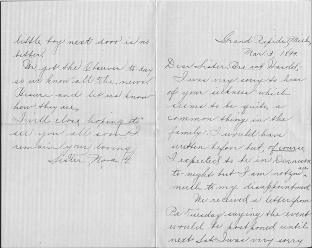 Grand Rapids, Mich,
Nov. 3, 18
Dear Sister, Bro. and Harold:
I was very sorry to hear
of your illness which
seems to be quite a
common thing in the
family. I would have
written before but, of course
I expected to be in
to night but I am not
much to my disappointment
We received a letter from
Pa Tuesday saying the event
would be postponed until
next Sat. I was very sorry
little boy next door is no
better.
We got the Observer to day
so we know all the news.
and let us know
how they are.
I will close hoping to
see you all soon I
remain your loving
Sister, Nora